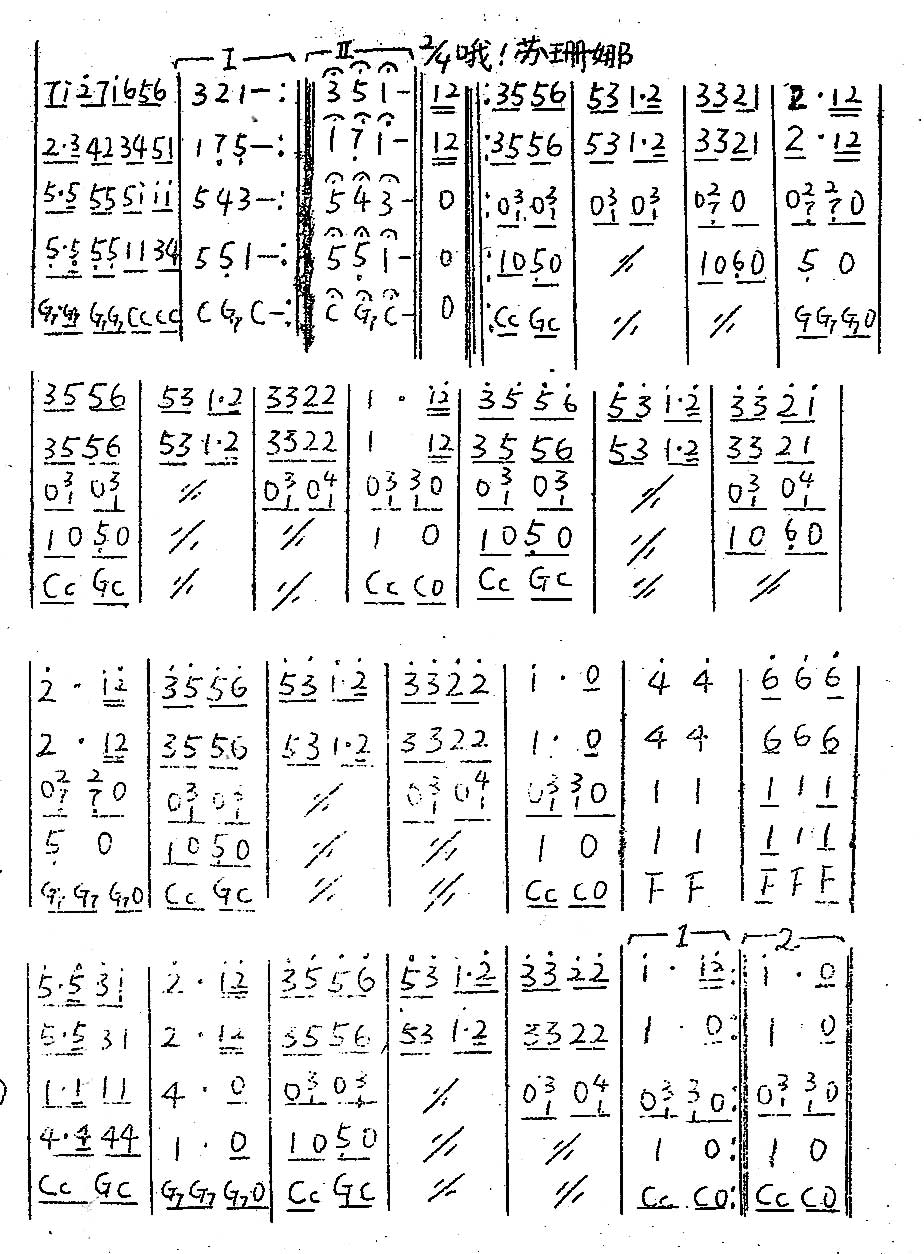 I II 2/4 哦！苏珊娜
7i̇2̇7i̇656 | 321-:‖ 351- ‖ 12 ‖: 3556 | 531·2 | 3321 | 2·12 |
2·3423451 | 175-:‖ 171- ‖ 12 ‖: 3556 | 531·2 | 3321 | 2·12 |
5·5555i̇i̇i̇ | 543-:‖ 543- ‖ 0
5·5551134 | 551-:‖ 551- ‖ 0 ‖: 1050 | ٪ | 1060 | 5 0 |
G7G7 G7G7 CC CC | C G7 C-:‖ C G7 C- ‖ 0 ‖: CC GC | ٪ | ٪ | G G7 G7 0 |
3556 | 531·2 | 3322 | 1·12 | 3̇5̇5̇6̇ | 5̇3̇i̇·2̇ | 3̇3̇2̇i̇ |
3556 | 531·2 | 3322 | 1 12 | 3556 | 531·2 | 3321 |
1050 | ٪ | ٪ | 1 0 | 1050 | ٪ | 1060 |
CC GC | ٪ | ٪ | CC C0 | CC GC | ٪ | ٪ |
2̇·i̇2̇ | 3̇5̇5̇6̇ | 5̇3̇i̇·2̇ | 3̇3̇2̇2̇ | i̇·0 | 4̇ 4̇ | 6̇ 6̇ 6̇ |
2·12 | 3556 | 531·2 | 3322 | 1·0 | 4 4 | 6 6 6 |
5 0 | 1050 | ٪ | ٪ | 1 0 | 1 1 | 1 1 1 |
G7 G7 G7 0 | CC GC | ٪ | ٪ | CC C0 | F F | F F F |
1 2
5̇·5̇3̇i̇ | 2̇·i̇2̇ | 3̇5̇5̇6̇ | 5̇3̇i̇·2̇ | 3̇3̇2̇2̇ | i̇·i̇2̇:‖ i̇·0 ‖
5·531 | 2·12 | 3556 | 531·2 | 3322 | 1·0:‖ 1·0 ‖
4·444 | 1·0 | 1050 | ٪ | ٪ | 1 0:‖ 1 0 ‖
CC GC | G7 G7 G7 0 | CC GC | ٪ | ٪ | CC C0:‖ CC C0 ‖